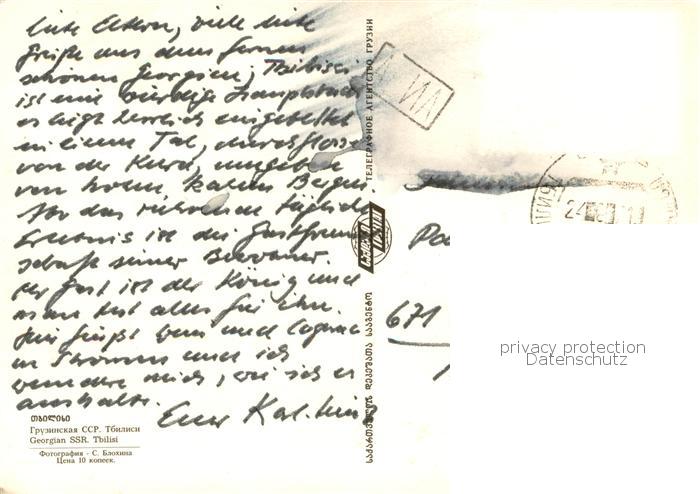 liebe Eltern, viele liebe
Grüße aus dem fernen
schönen Georgien, Tbilissi
ist eine würdige Hauptstadt
es liegt herrlich eingebettet
in einem Tal, durchflossen
von der Kura, umgeben
von hohen kahlen Bergen.
das rührende tägliche
Erlebnis ist die Gastfreund
schaft seiner Bewohner.
Der Gast ist der König und
man tut alles für ihn.
Hier fließt Wein und Cognac
in Strömen und ich
wundere mich, wie ich es
aushalte.
Euer Karl-Heinz
თბილისი
Грузинская ССР. Тбилиси
Georgian SSR. Tbilisi
Фотография - С. Блохина
Цена 10 копеек.
ТЕЛЕГРАФНОЕ АГЕНТСТВО ГРУЗИИ
საქართველოს დეპეშათა სააგენტო
671
24
privacy protection
Datenschutz